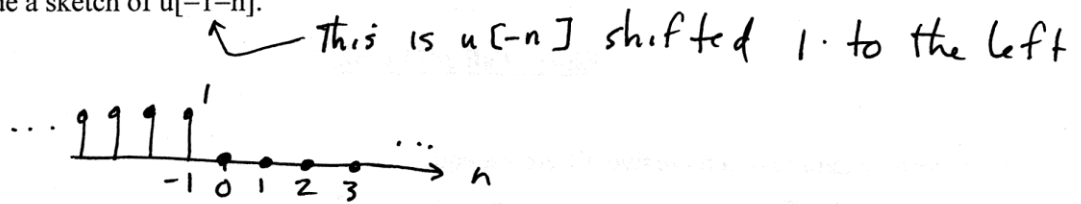 a sketch of u[−1−n].
This is u[-n] shifted 1 to the left
... 1 ...
-1 0 1 2 3 n